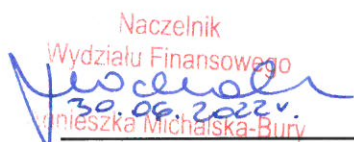 Naczelnik
Wydziału Finansowego
30.06.2022r.
Agnieszka Michalska-Bury